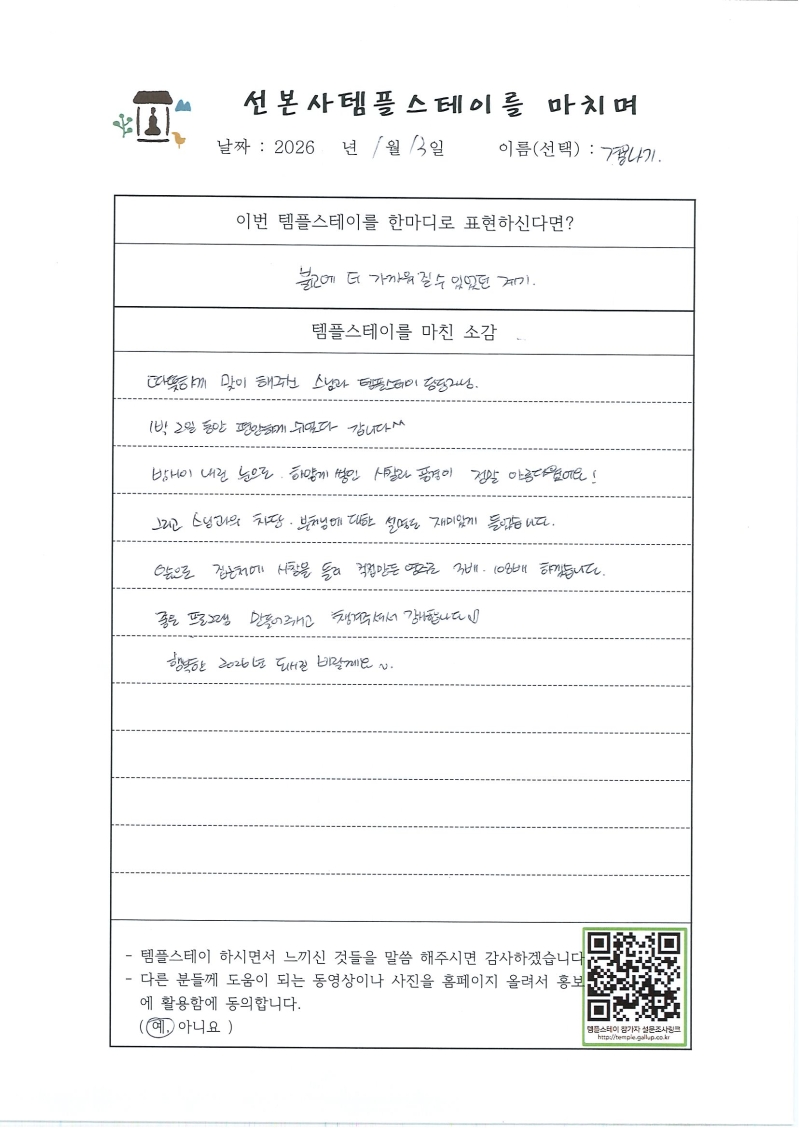 선본사템플스테이를 마치며
날짜 : 2026 년 1월 13일 이름(선택) :
이번 템플스테이를 한마디로 표현하신다면?
불교에 더 가까워질 수 있었던 계기.
템플스테이를 마친 소감
따뜻하게 맞이 해주신 스님과 템플스테이 담당자님.
1박 2일 동안 편안하게 쉬었다 갑니다^^
밤새이 내린 눈으로 하얗게 쌓인 사찰과 풍경이 정말 아름다웠어요!
그리고 스님과의 차담. 부처님에 대한 설명도 재미있게 들었습니다.
앞으로 집근처에 사찰을 들러 직접만든 염주로 3배. 108배 하겠습니다.
좋은 프로그램 만들어주시고 챙겨주셔서 감사합니다
행복한 2026년 되시길 바랄게요~.
- 템플스테이 하시면서 느끼신 것들을 말씀 해주시면 감사하겠습니다
- 다른 분들께 도움이 되는 동영상이나 사진을 홈페이지 올려서 홍보
에 활용함에 동의합니다.
( 예, 아니요 )
템플스테이 참가자 설문조사링크
http://temple.gallup.co.kr